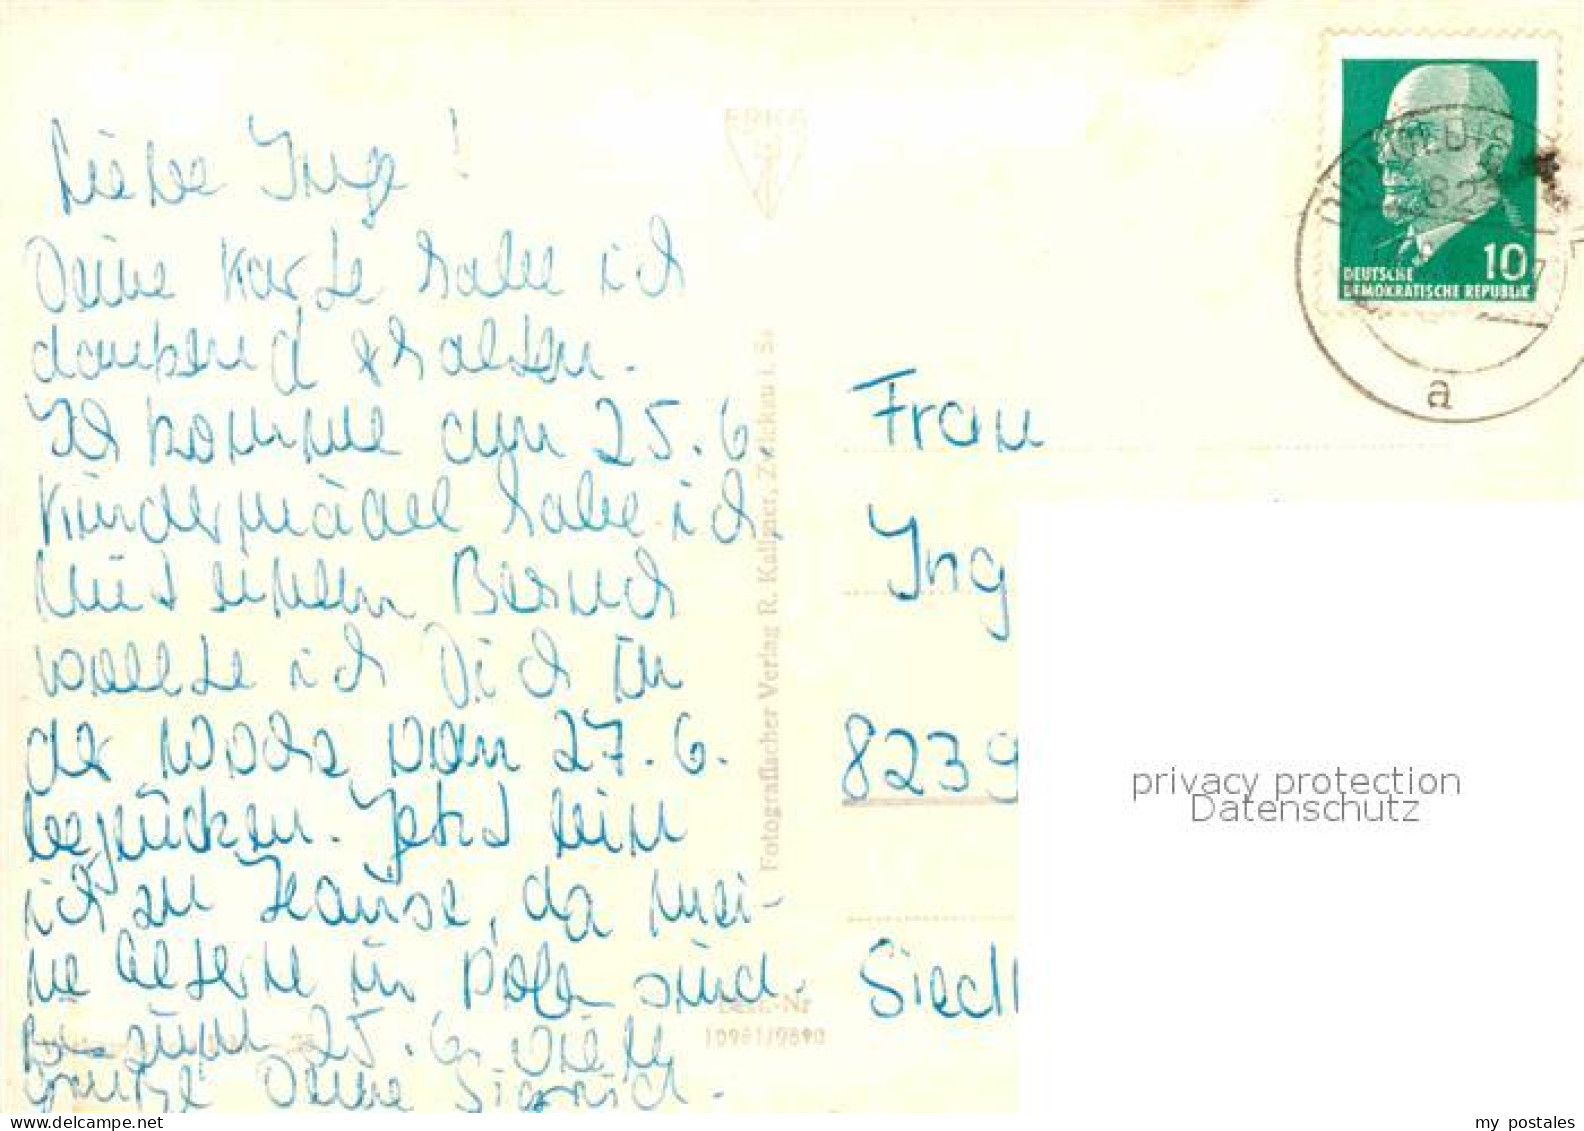 Liebe Inge!
Deine Karte habe ich
dankend erhalten.
Ich komme am 25.6.
Kindermädel habe ich,
mit einem Besuch
wollte ich Dich in
der Woche vom 27.6.
beglücken. Jetzt bin
ich zu Hause, da mei-
ne Eltern in Polen sind.
Bis zum 25.6. viele
Grüße Deine Sigrid.
ERIKA
Fotografischer Verlag R. Kallmer, Zwickau i. Sa
Best.-Nr
10981/9890
DEUTSCHE
DEMOKRATISCHE REPUBLIK
10
82
a
Frau
Ing
8239
Siedl
privacy protection
Datenschutz
my postales